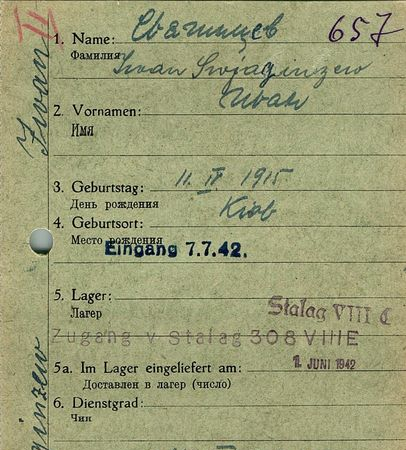 II 657
1. Name: Свягинцев
Фамилия
Iwan Swjaginzew
Иван
2. Vornamen:
Имя
3. Geburtstag: 11. IV 1915
День рождения
4. Geburtsort: Kiob
Место рождения
Eingang 7.7.42.
5. Lager: Stalag VIII C
Лагер
Zugang v. Stalag 308 VIIIE
5a. Im Lager eingeliefert am: 1. JUNI 1942
Доставлен в лагер (число)
6. Dienstgrad:
Чин
Iwan
ginzew